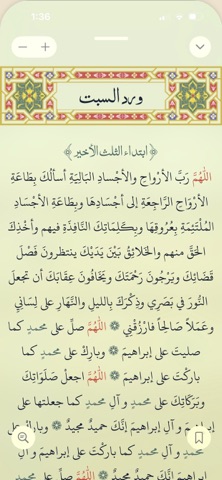 1:36
ورد السبت
﴿ابتداء الثلث الأخير﴾
اللَّهُمَّ رَبَّ الأَرْوَاحِ والأجْسادِ البَالِيَةِ أسألُكَ بِطَاعَةِ
الأرْوَاحِ الرَّاجِعَةِ إلى أجْسَادِهَا وبِطَاعَةِ الأجْسَادِ
المُلْتَئِمَةِ بِعُرُوقِهَا وبِكَلِمَاتِكَ النَّافِذَةِ فيهم وأخْذِكَ
الحَقَّ منهم والخَلَائِقُ بَيْنَ يَدَيْكَ ينتظرون فَصْلَ
قَضَائِكَ ويَرْجُونَ رَحْمَتَكَ ويَخَافُونَ عِقابَكَ أن تجعلَ
النُّورَ في بَصَرِي وذِكْرَكَ بالليلِ والنَّهارِ على لِسَانِي
وعَمَلاً صَالِحاً فارْزُقْنِي ۞ اللَّهُمَّ صلِّ على محمدٍ كما
صليتَ على إبراهيمَ ۞ وبارِكْ على محمدٍ كما
باركْتَ على إبراهيمَ ۞ اللَّهُمَّ اجعلْ صَلَوَاتِكَ
وبَرَكَاتِكَ على محمدٍ و آلِ محمدٍ كما جعلتها على
إبراهيمَ و آلِ إبراهيمَ إنَّكَ حميدٌ مجيدٌ ۞ وباركْ على
محمدٍ و آلِ محمدٍ كما باركْتَ على إبراهيمَ و آلِ
إبراهيمَ إنَّكَ حميدٌ مجيدٌ ۞ اللَّهُمَّ صلِّ على محمدٍ